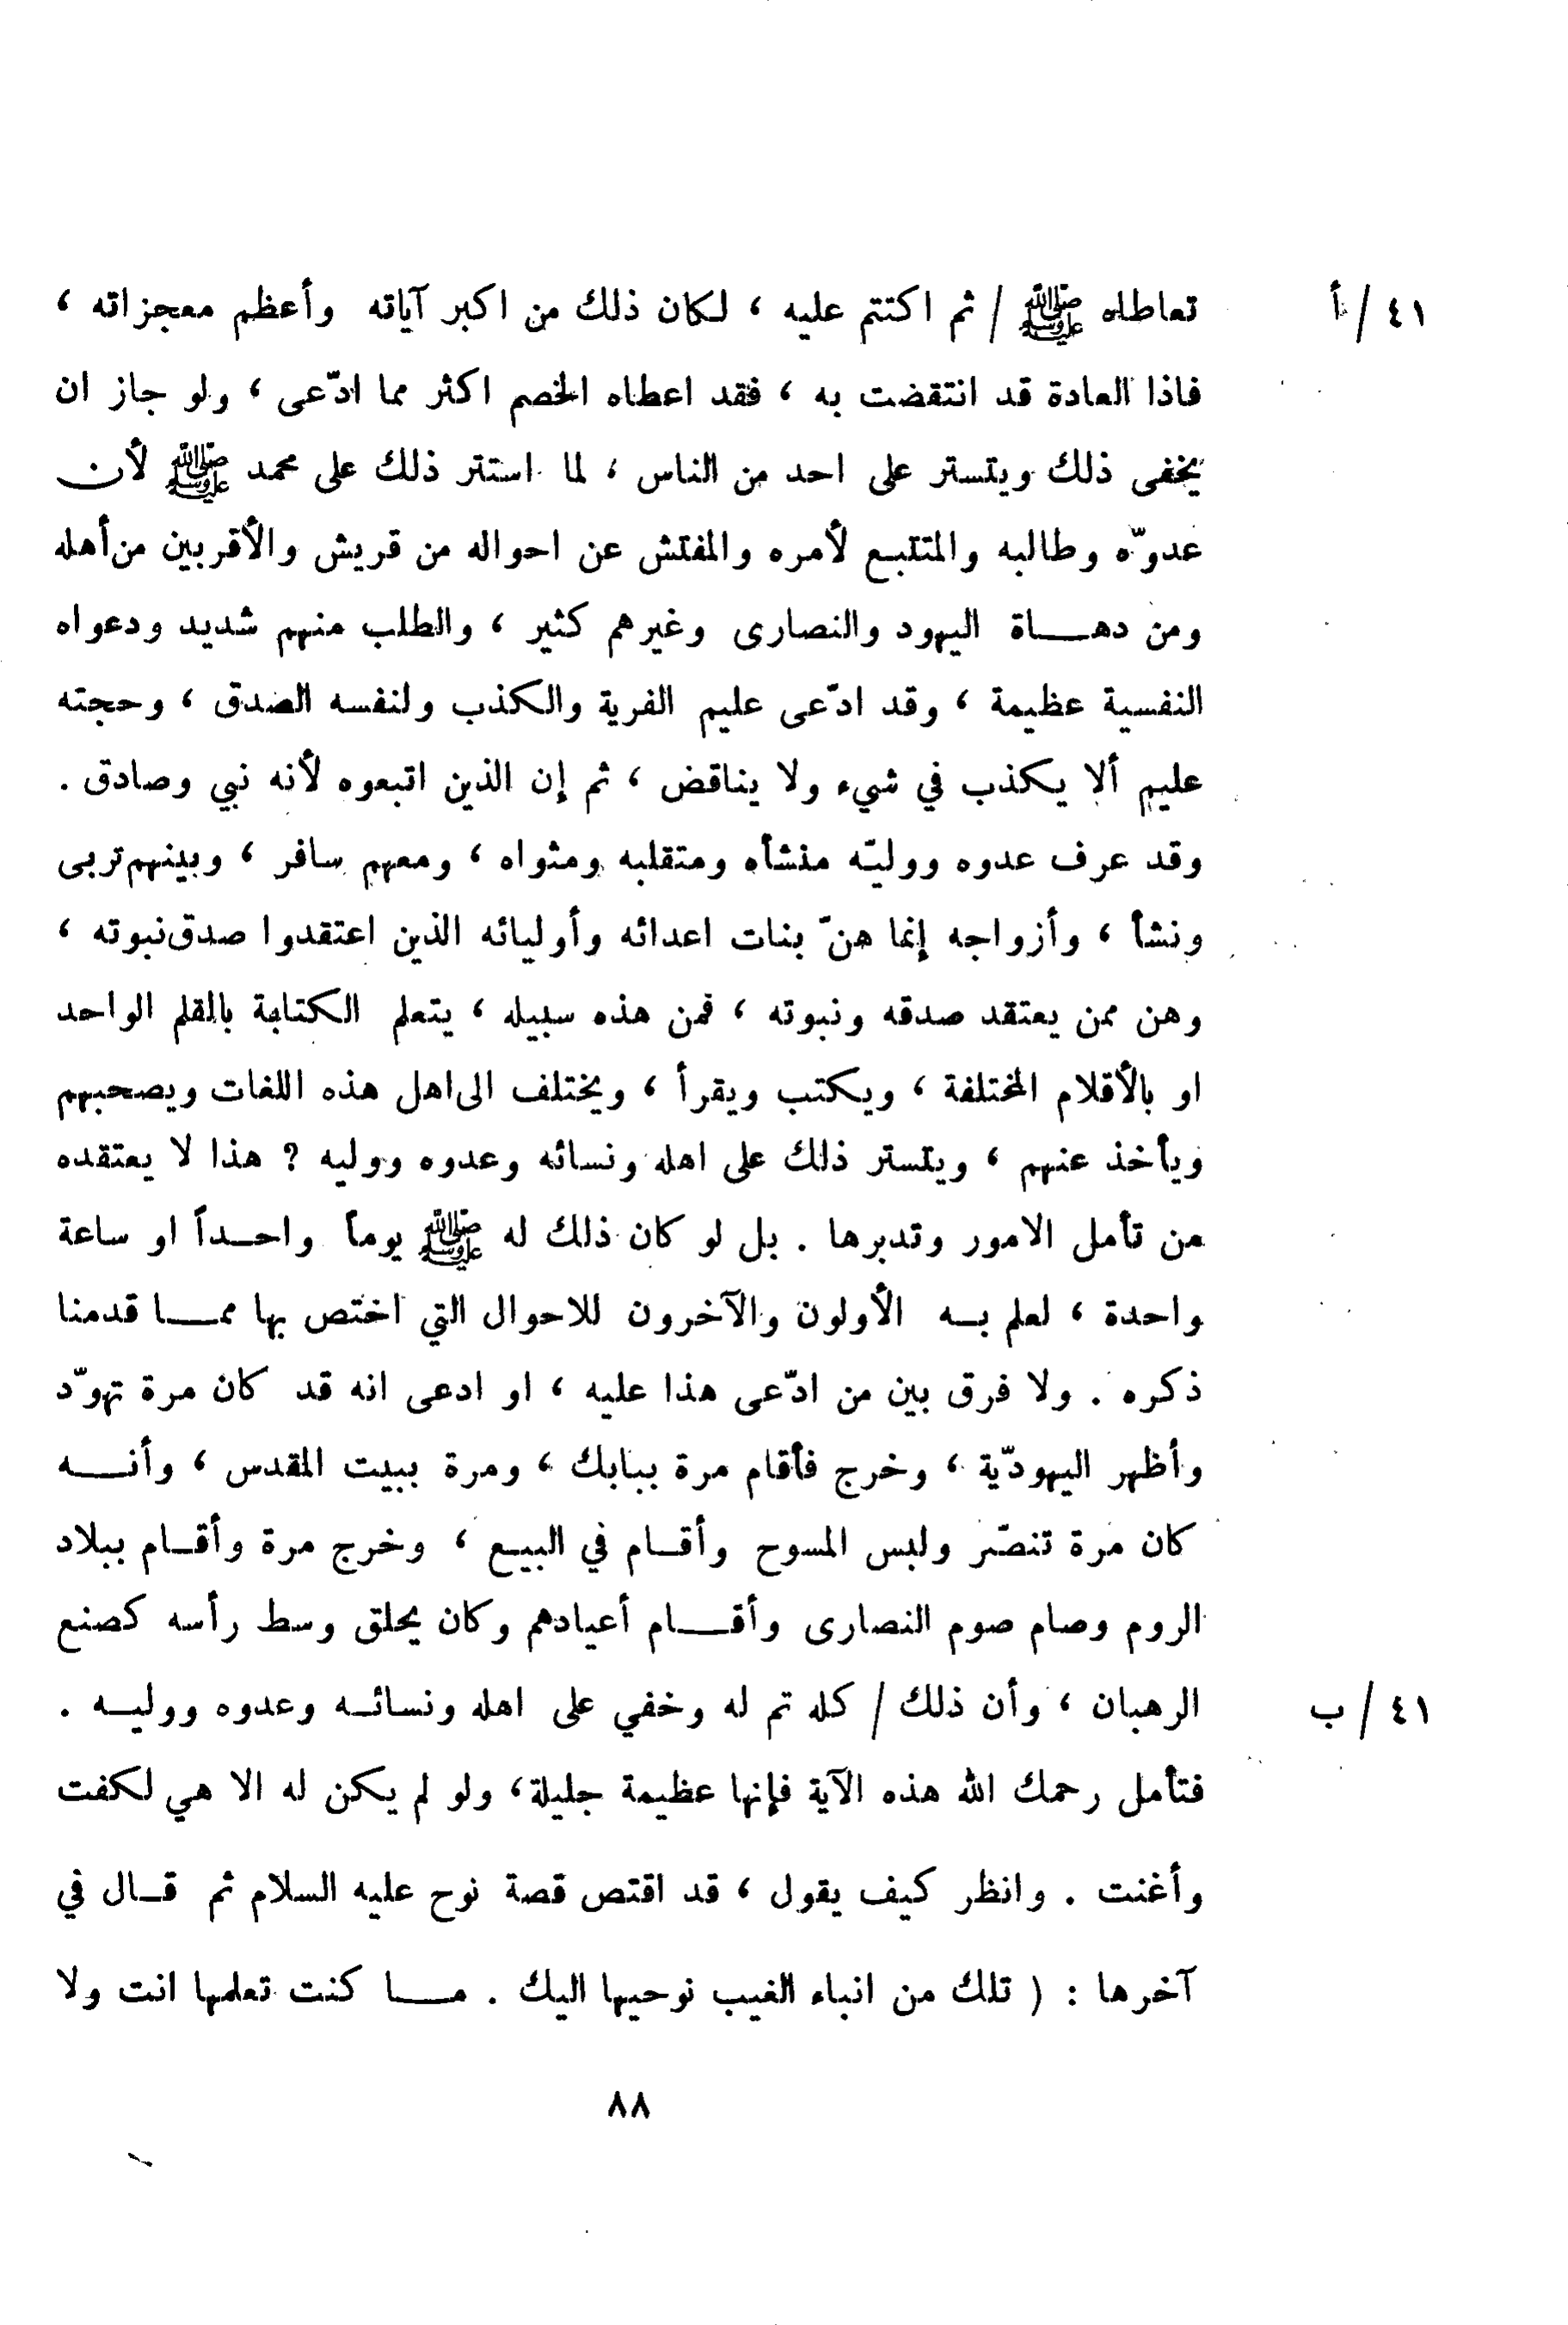 ٤١/أ تعاطاه ﷺ / ثم اكتتم عليه ، لكان ذلك من اكبر آياته وأعظم معجزاته ،
فاذا العادة قد انتقضت به ، فقد اعطاه الخصم اكثر مما ادّعى ، ولو جاز ان
يخفى ذلك ويتستر على احد من الناس ، لما استتر ذلك على محمد ﷺ لأن
عدوّه وطالبه والمتتبع لأمره والمفتش عن احواله من قريش والأقربين من أهله
ومن دهاة اليهود والنصارى وغيرهم كثير ، والطلب منهم شديد ودعواه
النفسية عظيمة ، وقد ادّعى عليم الفرية والكذب ولنفسه الصدق ، وحجته
عليم ألا يكذب في شيء ولا يناقض ، ثم إن الذين اتبعوه لأنه نبي وصادق .
وقد عرف عدوه ووليّه منشأه ومتقلبه ومثواه ، ومعهم سافر ، وبينهم تربى
ونشأ ، وأزواجه إنما هنّ بنات اعدائه وأوليائه الذين اعتقدوا صدق نبوته ،
وهن ممن يعتقد صدقه ونبوته ، فمن هذه سبيله ، يتعلم الكتابة بالقلم الواحد
او بالأقلام المختلفة ، ويكتب ويقرأ ، ويختلف الى اهل هذه اللغات ويصحبهم
ويأخذ عنهم ، ويتستر ذلك على اهله ونسائه وعدوه ووليه ? هذا لا يعتقده
من تأمل الامور وتدبرها . بل لو كان ذلك له ﷺ يوماً واحداً او ساعة
واحدة ، لعلم به الأولون والآخرون للاحوال التي اختص بها مما قدمنا
ذكره . ولا فرق بين من ادّعى هذا عليه ، او ادعى انه قد كان مرة تهوّد
وأظهر اليهوديّة ، وخرج فأقام مرة ببابك ، ومرة ببيت المقدس ، وأنه
كان مرة تنصّر ولبس المسوح وأقام في البيع ، وخرج مرة وأقام ببلاد
الروم وصام صوم النصارى وأقام أعيادهم وكان يحلق وسط رأسه كصنع
٤١/ب الرهبان ، وأن ذلك / كله تم له وخفي على اهله ونسائه وعدوه ووليه .
فتأمل رحمك الله هذه الآية فإنها عظيمة جليلة، ولو لم يكن له الا هي لكفت
وأغنت . وانظر كيف يقول ، قد اقتص قصة نوح عليه السلام ثم قال في
آخرها : ( تلك من انباء الغيب نوحيها اليك . ما كنت تعلمها انت ولا
٨٨